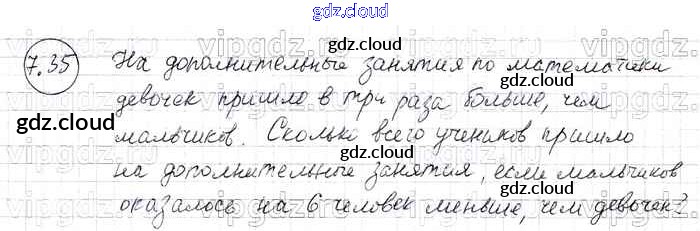 gdz.cloud
7.35 На дополнительные занятия по математики
девочек пришло в три раза больше, чем
мальчиков. Сколько всего учеников пришло
на дополнительные занятия, если мальчиков
оказалось на 6 человек меньше, чем девочек?
gdz.cloud
gdz.cloud
gdz.cloud
gdz.cloud
gdz.cloud
gdz.cloud